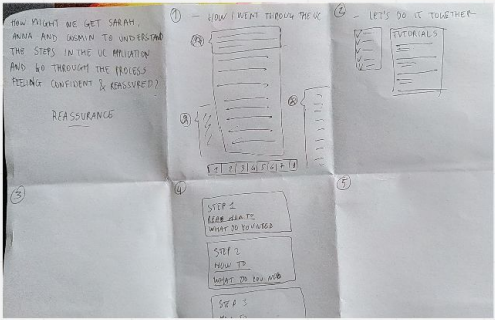 HOW MIGHT WE GET SARAH,
ANNA AND COSMIN TO UNDERSTAND
THE STEPS IN THE UC APPLICATION
AND GO THROUGH THE PROCESS
FEELING CONFIDENT & REASSURED?
REASSURANCE
1 - HOW I WENT THROUGH THE UC
1 2 3 4 5 6 7 8
2 - LET'S DO IT TOGETHER
TUTORIALS
3
4
STEP 1
WHAT DO YOU NEED
STEP 2
HOW TO
WHAT DO YOU NEED
STEP 3
5